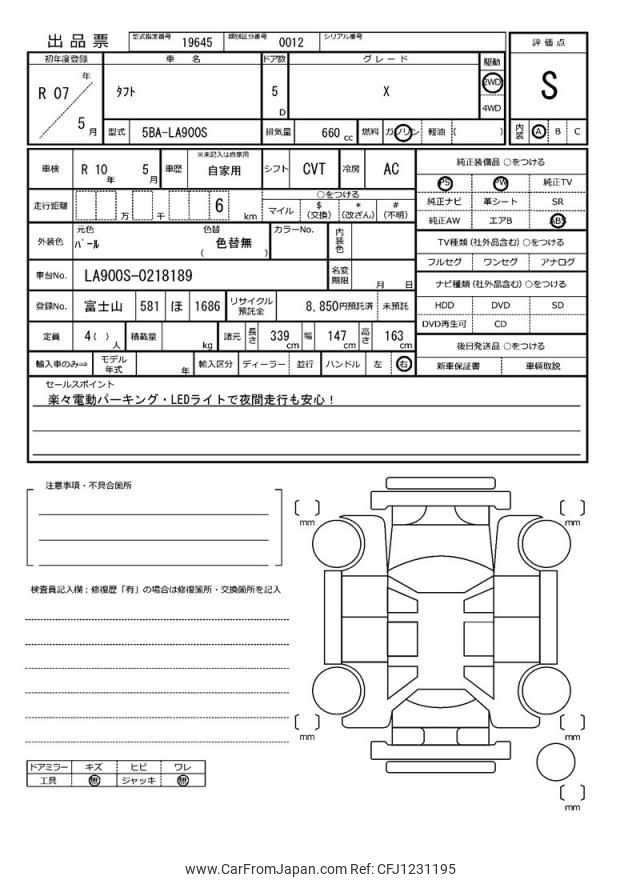 出品票
型式指定番号 19645 類別区分番号 0012 シリアル番号
初年度登録 車名 ドア数 グレード 駆動 評価点
R 07 年 5 月
ﾀﾌﾄ 5 D X 2WD 4WD S
型式 5BA-LA900S 排気量 660 cc 燃料 ガソリン 軽油 ( ) 内装 A B C
車検 R 10 年 5 月 車歴 ※未記入は自家用 自家用 シフト CVT 冷房 AC
純正装備品 ○をつける
PS PW 純正TV
純正ナビ 革シート SR
純正AW エアB ABS
走行距離 万 千 6 km ○をつける
マイル $ (交換) * (改ざん) # (不明)
外装色 元色 ﾊﾟｰﾙ 色替 色替無 ( ) カラーNo. 内装色
TV種類 (社外品含む) ○をつける
フルセグ ワンセグ アナログ
車台No. LA900S-0218189 名変期限 月 日
ナビ種類 (社外品含む) ○をつける
HDD DVD SD
DVD再生可 CD
登録No. 富士山 581 ほ 1686 リサイクル預託金 8,850円預託済 未預託
定員 4( ) 人 積載量 kg 諸元 長さ 339 cm 幅 147 cm 高さ 163 cm
後日発送品 ○をつける
新車保証書 車輌取説
輸入車のみ⇨ モデル年式 年 輸入区分 ディーラー 並行 ハンドル 左 右
セールスポイント
楽々電動パーキング・LEDライトで夜間走行も安心！
注意事項・不具合箇所
mm
mm
検査員記入欄：修復歴「有」の場合は修復箇所・交換箇所を記入
mm
mm
mm
ドアミラー キズ ヒビ ワレ
工具 無 ジャッキ 無
www.CarFromJapan.com Ref: CFJ1231195